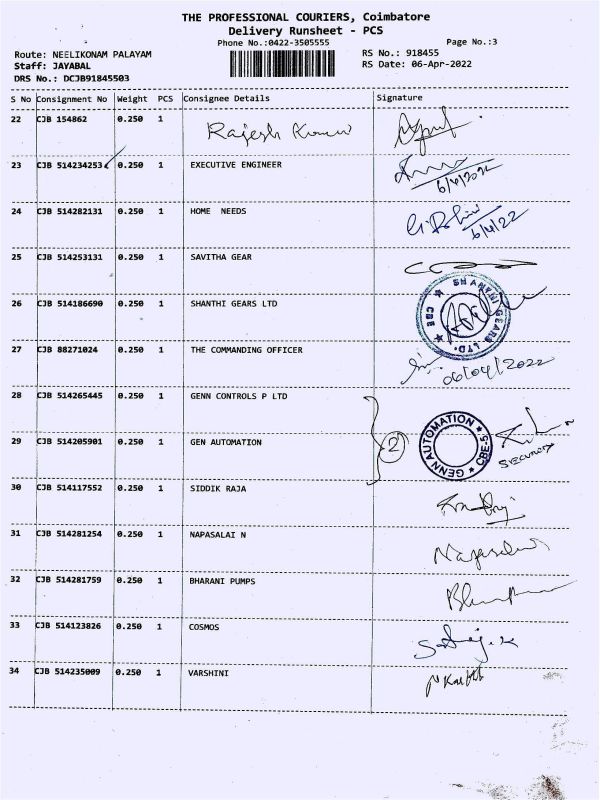 THE PROFESSIONAL COURIERS, Coimbatore
Delivery Runsheet - PCS
Phone No.:0422-3505555
Page No.:3
Route: NEELIKONAM PALAYAM
RS No.: 918455
Staff: JAYABAL
RS Date: 06-Apr-2022
DRS No.: DCJB91845503
S No Consignment No Weight PCS Consignee Details Signature
22 CJB 154862 0.250 1 Rajesh Kumar
23 CJB 514234253 0.250 1 EXECUTIVE ENGINEER
6/4/2022
24 CJB 514282131 0.250 1 HOME NEEDS
6/4/22
25 CJB 514253131 0.250 1 SAVITHA GEAR
26 CJB 514186690 0.250 1 SHANTHI GEARS LTD
SHANTHI GEARS LTD. ★ CBE ★
27 CJB 88271024 0.250 1 THE COMMANDING OFFICER
06/04/2022
28 CJB 514265445 0.250 1 GENN CONTROLS P LTD
29 CJB 514205901 0.250 1 GEN AUTOMATION
2
GENN AUTOMATION ★ CBE-5 ★
Security
30 CJB 514117552 0.250 1 SIDDIK RAJA
31 CJB 514281254 0.250 1 NAPASALAI N
32 CJB 514281759 0.250 1 BHARANI PUMPS
33 CJB 514123826 0.250 1 COSMOS
34 CJB 514235009 0.250 1 VARSHINI